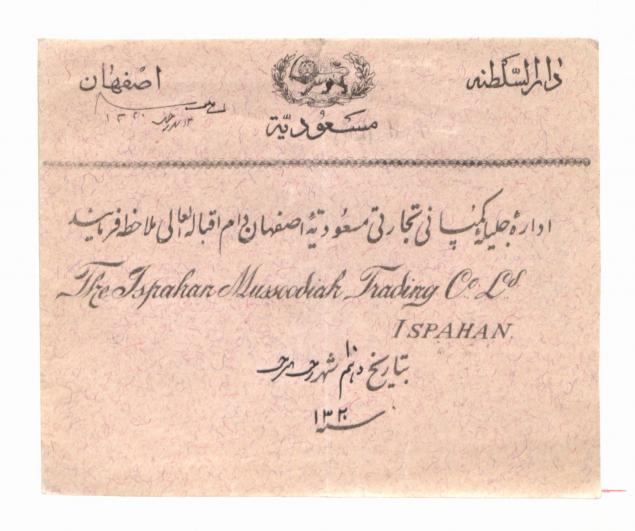 دارالسّلطنه
اصفهان
مسعُودیّة
ادارهٔ جلیلهٔ کمپانی تجارتی مسعُودیّهٔ اصفهان دام اقباله العالی ملاحظه فرمایند
The Ispahan Mussoodiah Trading Co. Ld.
ISPAHAN.
بتاریخ شهر رجب
سنه ۱۳۲۰